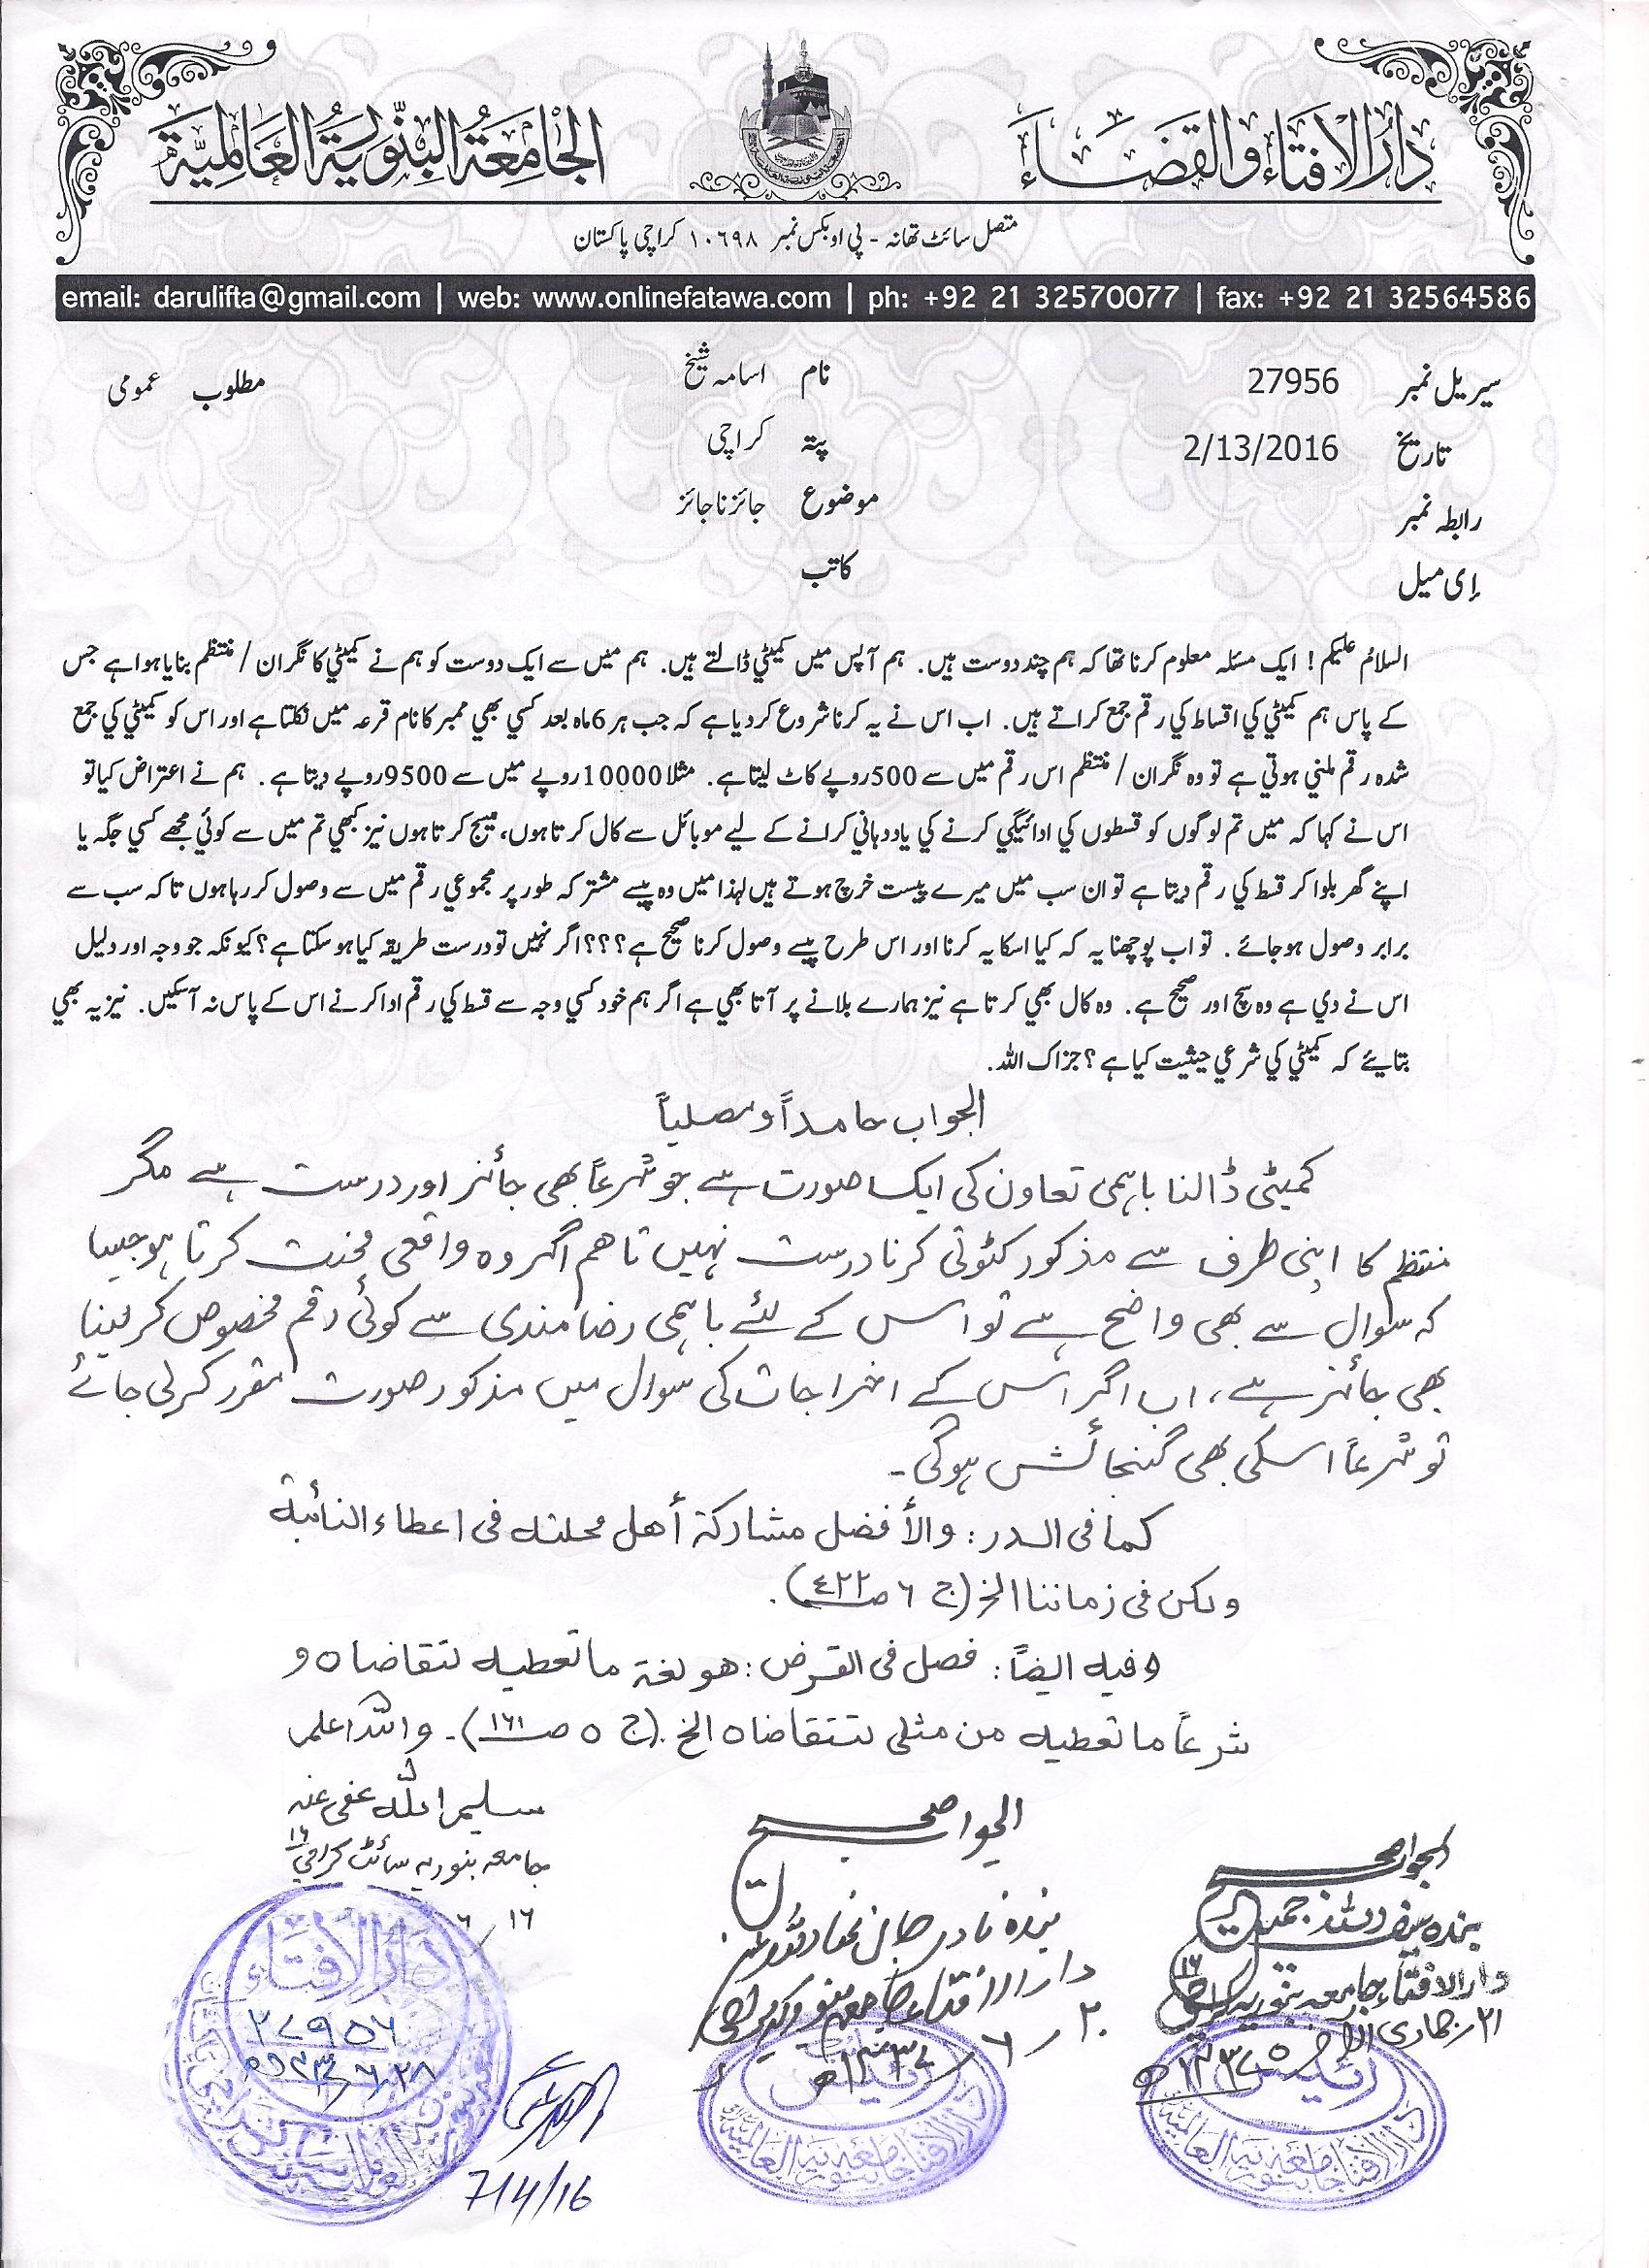 دارالافتاء والقضاء
الجامعة البنورية العالمية
متصل سائٹ تھانہ - پی او بکس نمبر ۱۰۶۹۸ کراچی پاکستان
email: darulifta@gmail.com | web: www.onlinefatawa.com | ph: +92 21 32570077 | fax: +92 21 32564586
سیریل نمبر 27956 نام اسامہ شیخ مطلوب عمومی
تاریخ 2/13/2016 پتہ کراچی
رابطہ نمبر موضوع جائز ناجائز
اِی میل کاتب
السلام علیکم ! ایک مسئلہ معلوم کرنا تھا کہ ہم چند دوست ہیں. ہم آپس میں کمیٹی ڈالتے ہیں. ہم میں سے ایک دوست کو ہم نے کمیٹی کا نگران / منتظم بنایا ہوا ہے جس
کے پاس ہم کمیٹی کی اقساط کی رقم جمع کراتے ہیں. اب اس نے یہ کرنا شروع کر دیا ہے کہ جب ہر 6 ماہ بعد کسی بھی ممبر کا نام قرعہ میں نکلتا ہے اور اس کو کمیٹی کی جمع
شدہ رقم ملنی ہوتی ہے تو وہ نگران / منتظم اس رقم میں سے 500 روپے کاٹ لیتا ہے. مثلا 10000 روپے میں سے 9500 روپے دیتا ہے. ہم نے اعتراض کیا تو
اس نے کہا کہ میں تم لوگوں کو قسطوں کی ادائیگی کرنے کی یاددہانی کرانے کے لیے موبائل سے کال کرتا ہوں، میسج کرتا ہوں نیز کبھی تم میں سے کوئی مجھے کسی جگہ یا
اپنے گھر بلوا کر قسط کی رقم دیتا ہے تو ان سب میں میرے پیسٹ خرچ ہوتے ہیں لہذا میں وہ پیسے مشترکہ طور پر مجموعی رقم میں سے وصول کر رہا ہوں تاکہ سب سے
برابر وصول ہو جائے. تو اب پوچھنا یہ کہ کیا اسکا یہ کرنا اور اس طرح پیسے وصول کرنا صحیح ہے؟؟؟ اگر نہیں تو درست طریقہ کیا ہو سکتا ہے؟ کیونکہ جو وجہ اور دلیل
اس نے دی ہے وہ سچ اور صحیح ہے. وہ کال بھی کرتا ہے نیز ہمارے بلانے پر آتا بھی ہے اگر ہم خود کسی وجہ سے قسط کی رقم ادا کرنے اس کے پاس نہ آسکیں. نیز یہ بھی
بتایئے کہ کمیٹی کی شرعی حیثیت کیا ہے؟ جزاک اللہ.
الجواب حامداً ومصلیاً
کمیٹی ڈالنا باہمی تعاون کی ایک صورت ہے جو شرعاً بھی جائز اور درست ہے مگر
منتظم کا اپنی طرف سے مذکور کٹوتی کرنا درست نہیں تاہم اگر وہ واقعی محنت کرتا ہو جیسا
کہ سوال سے بھی واضح ہے تو اس کے لئے باہمی رضامندی سے کوئی رقم مخصوص کر لینا
بھی جائز ہے، اب اگر اس کے اخراجات کی سوال میں مذکور صورت مقرر کر لی جائے
تو شرعاً اسکی بھی گنجائش ہوگی۔
کما فی الدر: والأفضل مشارکة أهل محلته فی اعطاء النائبة
ولکن فی زماننا الخ (ج ۶ ص ۴۲۲).
وفیه ایضاً: فصل فی القرض: هو لغة ما تعطیه لتقاضاه و
شرعاً ما تعطیه من مثلی لتتقاضاه الخ. (ج ۵ ص ۱۶۱)۔ واللہ اعلم
سلیم اللہ عفی عنہ
جامعہ بنوریہ سائٹ کراچی ۱۶
۱۶ / ۶
الجواب صحیح
بندہ نادر جان
دارالافتاء جامعہ بنوریہ کراچی
۲۰ / ۶ / ۱۴۳۷ھ
الجواب صحیح
بندہ سیف اللہ جمیل
دارالافتاء جامعہ بنوریہ کراچی ۱۶
۲۱ / جمادی الآخر ۱۴۳۷ھ
دارالافتاء
۲۷۹۵۶
۲۸/۶/۱۴۳۷ھ
7/4/16
رئیس
دارالافتاء جامعہ بنوریہ العالمیہ
رئیس
دارالافتاء جامعہ بنوریہ العالمیہ